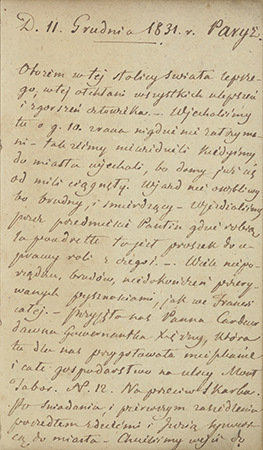 D. 11. Grudnia 1831. r. Paryż.
Otóżem w tej stolicy świata lepsze-
go, w tej otchłani wszystkich ulepszeń
i zgorszeń człowieka. — Wjechaliśmy
tu o g. 10. zrana nigdzie nie zatrzyma-
ni — takeśmy niewiedzieli kiedyśmy
do miasta wjechali, bo domy już się
od mili ciągnęły. Wjazd nie osobliwy
bo brudny, i śmierdzący — Wjechaliśmy
przez przedmieście Pantin gdzie robią
la poudrette to jest proszek do u-
prawy roli z . — Wiele niepo-
rządku, brudów, niedokończeń przery-
wanych pysznościami, jak we Francji
całej. — Przyjęła nas Panna
dawna Guwernantka X-żny, która
tu dla nas przygotowała mieszkanie
i całe gospodarstwo na ulicy Mont
Tabor. N. 12. Na przeciw Skarbu.
Po śniadaniu, i pierwszym zasiedleniu
poszedłem z dziećmi i
do miasta — Chcieliśmy wejść do